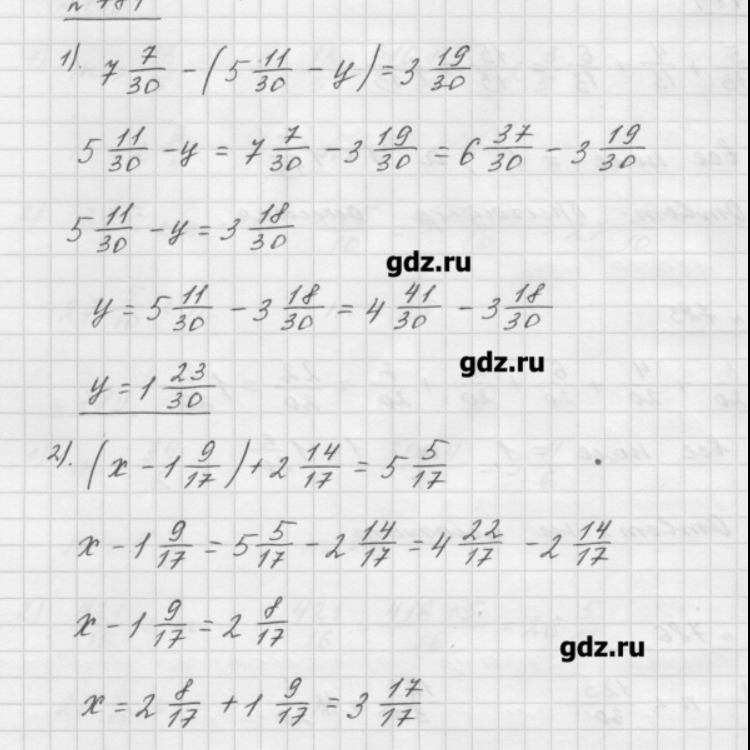 1). 7 7/30 - (5 11/30 - y) = 3 19/30
5 11/30 - y = 7 7/30 - 3 19/30 = 6 37/30 - 3 19/30
5 11/30 - y = 3 18/30
gdz.ru
y = 5 11/30 - 3 18/30 = 4 41/30 - 3 18/30
gdz.ru
y = 1 23/30
2). (x - 1 9/17) + 2 14/17 = 5 5/17
x - 1 9/17 = 5 5/17 - 2 14/17 = 4 22/17 - 2 14/17
x - 1 9/17 = 2 8/17
gdz.ru
x = 2 8/17 + 1 9/17 = 3 17/17